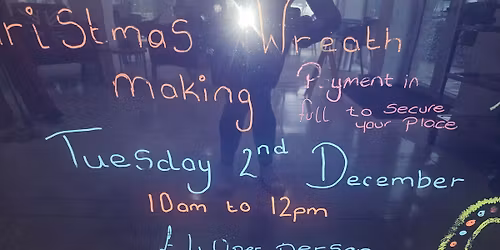 ristmas Wreath
making
Payment in
full to secure
your Place
Tuesday 2nd December
10am to 12pm
per person